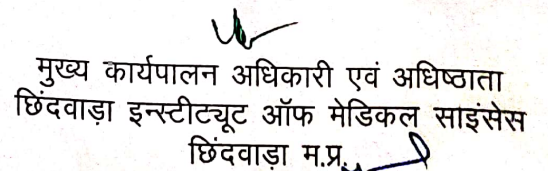 मुख्य कार्यपालन अधिकारी एवं अधिष्ठाता
छिंदवाड़ा इन्स्टीट्यूट ऑफ मेडिकल साइंसेस
छिंदवाड़ा म.प्र.